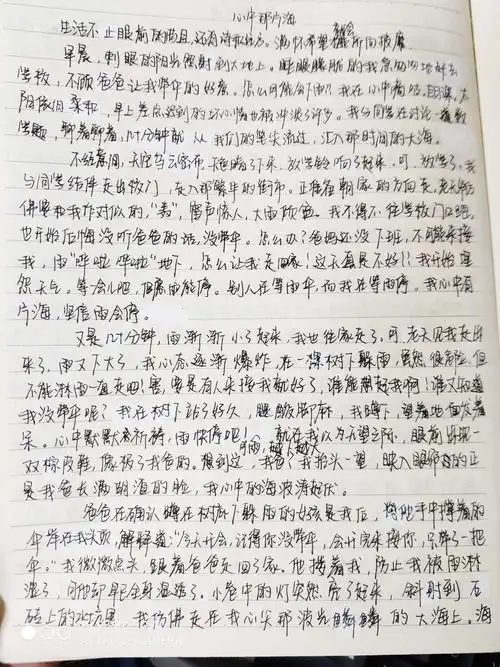 心中那片海
生活不止眼前的苟且,还有诗和远方。满怀希望就会所向披靡
早晨,刺眼的阳光照射到大地上。睡眼朦胧的我急匆匆地赶去
学校,不顾爸爸让我带伞的好意。怎么可能会下雨?我在心中嘀咕
阳依旧亲和,早上差点迟到的坏心情也被冲淡了许多。我与同学在讨论一道数
学题,聊着聊着,几十分钟就从我们的笔尖流过,汇入那时间的大海。
不经意间,天空乌云密布,天色暗了下来,放学铃响了起来。可,放学了。我
与同学结伴走出校门,走入那繁华的街市。正准备朝家的方向走,老天
仿佛要和我作对似的,“轰”,雷声惊人,大雨倾盆。我不得不往学校门口
也开始后悔没听爸爸的话,没带伞。怎么办?爸妈还没下班,不可能来接
我,雨“哗啦哗啦”地下,怎么让我走回家!这天真是不好!我开始埋
怨天气。等会儿吧,但愿雨能停。别人在等雨伞,而我在等雨停。我心中有
片海,坚信雨会停。
又是几十分钟,雨渐渐小了起来,我也往家走了。可,老天见我走出
来了,雨又下大了,我心态逐渐爆炸,在一棵树下躲雨,虽然很危险,但
不能淋雨一直走吧!害,要是有人来接我就好了,谁能帮帮我啊!谁又知道
我没带伞呢?我在树下站了好久,腿酸脚麻,我蹲下,望着地面发着
呆。心中默默祈祷,雨快停吧!可雨,越下越大 就在我以为无望之际,眼前出现一
双棕皮鞋,像极了我爸的。想到这,我爸?我抬头一望,映入眼帘的正
是我爸长满胡渣的脸,我心中的海波涛起伏。
爸爸在确认蹲在树底下躲雨的女孩是我后,将他手中撑着的
伞举在我头顶,解释道:“今天开会,记得你没带伞,会开完来接你,只带了一把
伞。”我微微点头,跟着爸爸走回了家。他搂着我,防止我被雨淋
湿了,可他却早已全身湿透了。小巷中的灯突然亮了起来,斜射到石
砖上的水洼里,我仿佛走在我心尖那波光粼粼的大海上。海